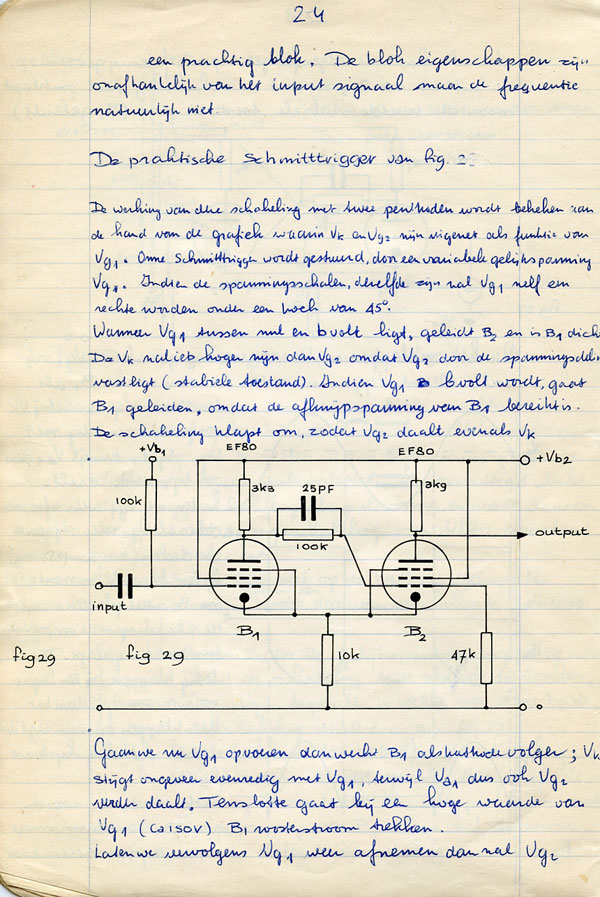 24
een prachtig blok. De blok eigenschappen zijn
onafhankelijk van het input signaal maar de frequentie
natuurlijk niet
De praktische Schmitttrigger van fig. 2
De werking van deze schakeling met twee penthoden wordt bekeken aan
de hand van de grafiek waarin Vk en Vg2 zijn uitgezet als funktie van
Vg1. Onze Schmitttrigger wordt gestuurd, door een variabele gelijkspanning
Vg1. Indien de spanningsschalen, dezelfde zijn zal Vg1 zelf een
rechte worden onder een hoek van 45°.
Wanneer Vg1 tussen nul en b volt ligt, geleidt B2 en is B1 dicht
De Vk zal iets hoger zijn dan Vg2 omdat Vg2 door de spanningsdeler
vast ligt (stabiele toestand). Indien Vg1 b volt wordt, gaat
B1 geleiden, omdat de afknijpspanning van B1 bereikt is.
De schakeling klapt om, zodat Vg2 daalt evenals Vk
+Vb1
EF80
EF80
+Vb2
100k
3k3
25PF
3k9
100k
output
input
B1
B2
10k
47k
fig 29
fig 29
Gaan we nu Vg1 opvoeren dan werkt B1 als kathodevolger; Vk
stijgt ongeveer evenredig met Vg1, terwijl Va1 dus ook Vg2
verder daalt. Tenslotte gaat bij een hoge waarde van
Vg1 (ca 150V) B1 roosterstroom trekken.
Laten we vervolgens Vg1 weer afnemen dan zal Vg2